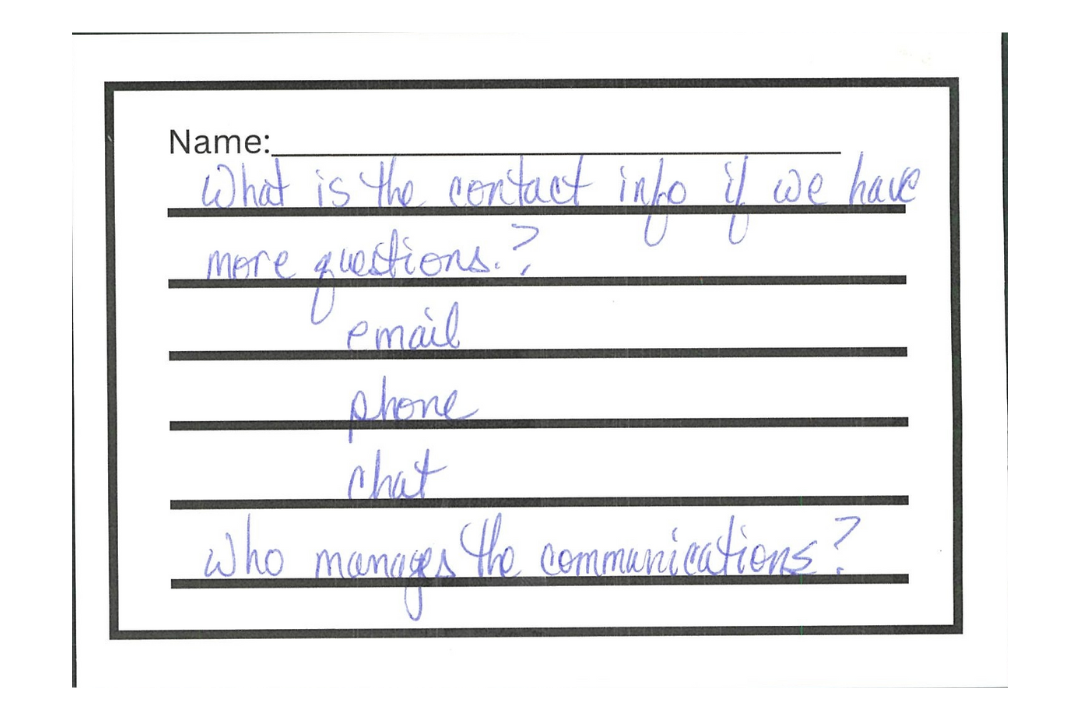 Name:
What is the contact info if we have
more questions.?
email
phone
chat
Who manages the communications?